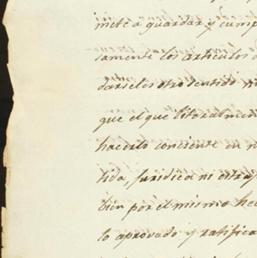 mete a guardar y cump
samente los articulos d
darseles otro sentido n
que el que literalment
hacerlo conciente en n
tida, juridica ni estraj
bien por el mismo hec
lo aprovado y ratifica